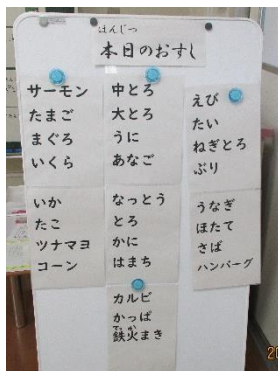 はんじつ
本日のおすし
サーモン
たまご
まぐろ
いくら
中とろ
大とろ
うに
あなご
えび
たい
ねぎとろ
ぶり
いか
たこ
ツナマヨ
コーン
なっとう
とろ
かに
はまち
うなぎ
ほたて
さば
ハンバーグ
カルビ
かっぱ
てっか
鉄火まき
20